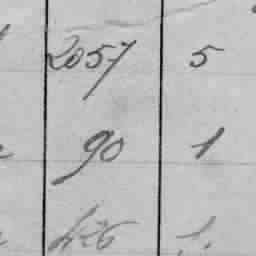 2057 5
90 1
426 1.